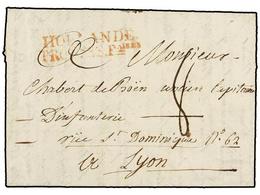 HOLLANDE
Monsieur
Chabert de Boën ancien Capitaine
8
D'infanterie
rüe St. Dominique No. 62
à Lyon